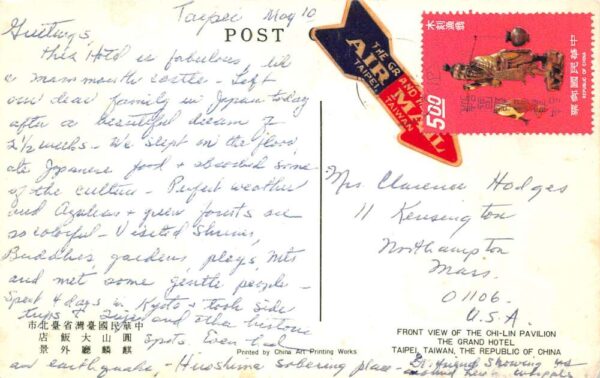 Taipei May 10
Greetings,
This Hotel is fabulous, like
a mammouth castle - Left
our dear family in Japan today
after a beautiful dream of
2 1/2 weeks - We slept on the floor,
ate Japanese food & absorbed some
of the culture - Perfect weather
and Azaleas & green forests are
so colorful - Visited Shrines,
Buddhas, gardens, plays, Mts
and met some gentle people -
Spent 4 days in Kyoto & took side
trips & and other historic
spots. Even had
an earthquake, - Hiroshima sobering place -
POST
THE GRAND HOTEL
AIR MAIL
TAIPEI TAIWAN
中華民國郵票
REPUBLIC OF CHINA
5.00
Mrs. Clarence Hodges
11 Kensington
Northampton
Mass.
01106.
U.S.A.
市北臺省灣臺國民華中
店飯大山圓
景外廳麟麒
Printed by China Art Printing Works
FRONT VIEW OF THE CHI-LIN PAVILION
THE GRAND HOTEL
TAIPEI, TAIWAN, THE REPUBLIC OF CHINA
friend showing us
around here.